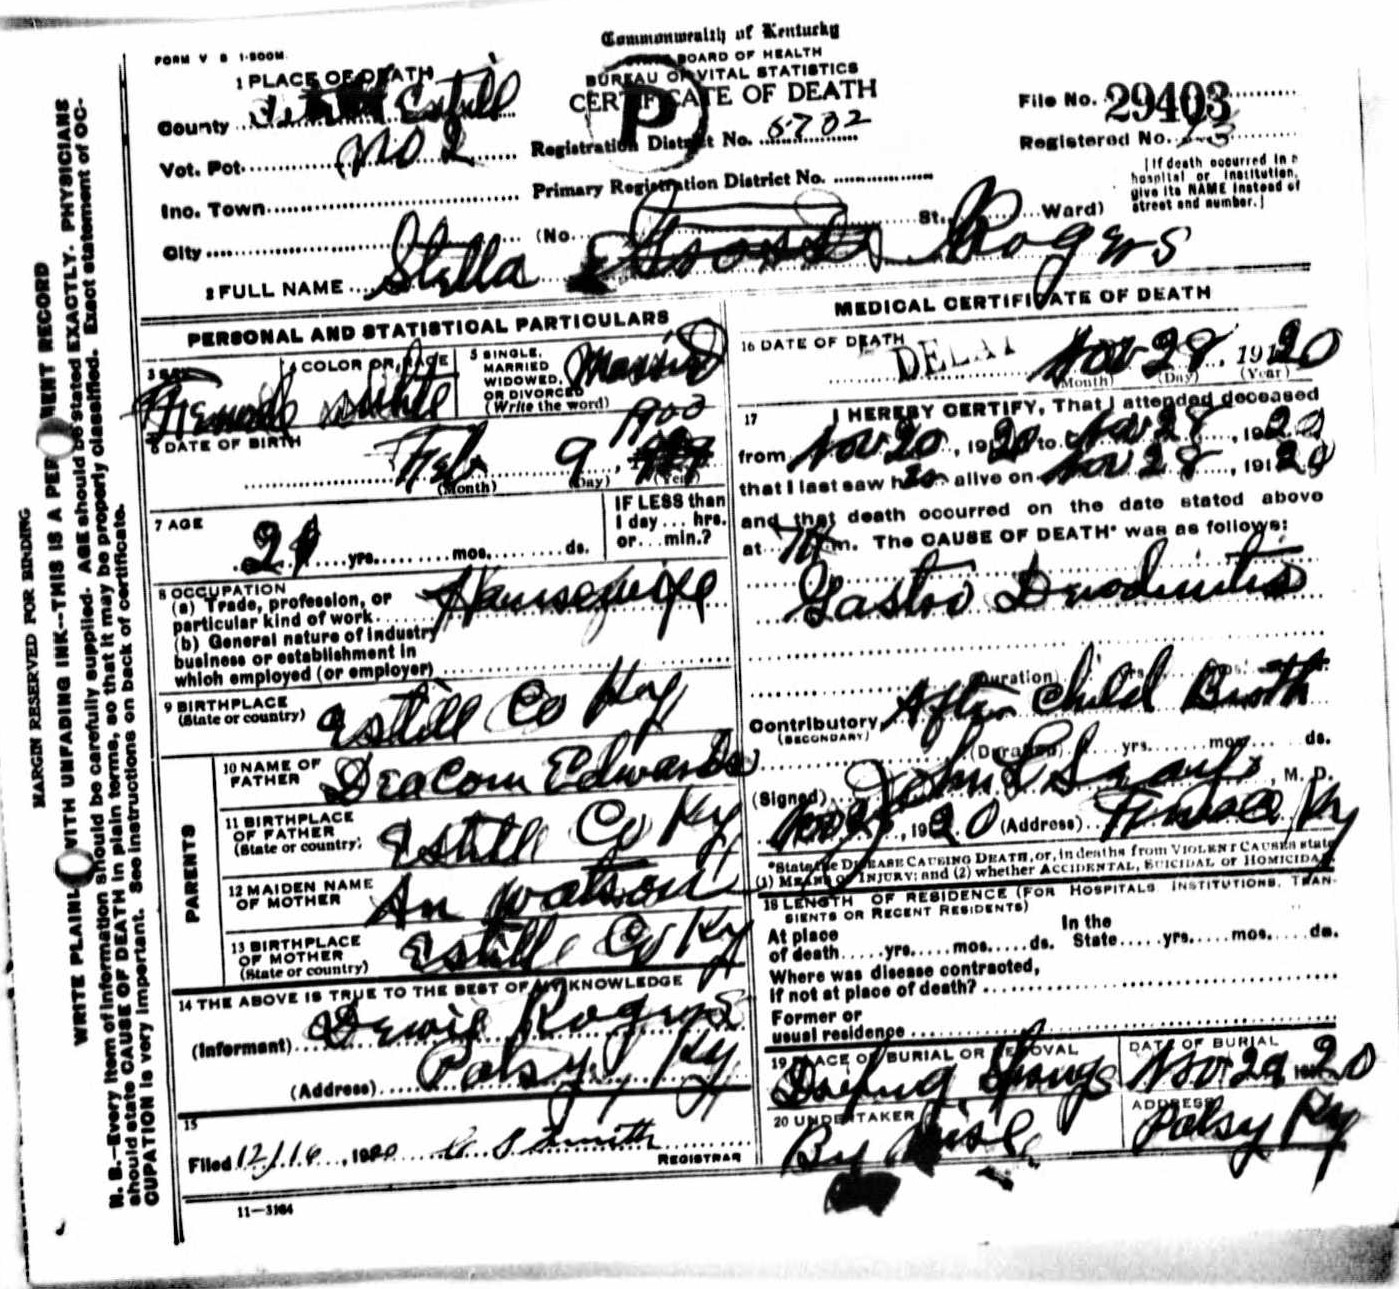 Commonwealth of Kentucky
FORM V S 1-500M
STATE BOARD OF HEALTH
BUREAU OF VITAL STATISTICS
CERTIFICATE OF DEATH
P
File No. 29403
Registered No. 23
1 PLACE OF DEATH
County Estill
Vot. Pot. No 2
Registration District No. 6732
Primary Registration District No.
[If death occurred in a
hospital or institution,
give its NAME instead of
street and number.]
Inc. Town
City (No. St. Ward)
2 FULL NAME Stella Rogers
PERSONAL AND STATISTICAL PARTICULARS
3 SEX Female
4 COLOR OR RACE white
5 SINGLE,
MARRIED
WIDOWED,
OR DIVORCED
(Write the word)
Married
6 DATE OF BIRTH
Feb 9, 1900
(Month) (Day) (Year)
7 AGE
21 yrs. mos. ds.
IF LESS than
1 day ... hrs.
or ... min.?
8 OCCUPATION
(a) Trade, profession, or
particular kind of work Housewife
(b) General nature of industry
business or establishment in
which employed (or employer)
9 BIRTHPLACE
(State or country) Estill Co Ky
PARENTS
10 NAME OF
FATHER Deacom Edwards
11 BIRTHPLACE
OF FATHER
(State or country) Estill Co Ky
12 MAIDEN NAME
OF MOTHER An Watson
13 BIRTHPLACE
OF MOTHER
(State or country) Estill Co Ky
14 THE ABOVE IS TRUE TO THE BEST OF MY KNOWLEDGE
(Informant) Dewie Rogers
(Address) Patsy, Ky
15
Filed 12/16, 1920 C S Smith
REGISTRAR
11—3164
MEDICAL CERTIFICATE OF DEATH
16 DATE OF DEATH
DELAY
Nov 28, 1920
(Month) (Day) (Year)
17 I HEREBY CERTIFY, That I attended deceased
from Nov 20, 1920 to Nov 28, 1920
that I last saw h alive on Nov 28, 1920
and that death occurred on the date stated above
at m. The CAUSE OF DEATH* was as follows:
Gastro Duodinitis
(Duration) yrs. mos. ds.
Contributory After Child Birth
(SECONDARY)
(Duration) yrs. mos. ds.
(Signed) John L , M. D.
, 1920 (Address) Ky
*State the DISEASE CAUSING DEATH, or, in deaths from VIOLENT CAUSES state
(1) MEANS OF INJURY; and (2) whether ACCIDENTAL, SUICIDAL or HOMICIDAL
18 LENGTH OF RESIDENCE (FOR HOSPITALS, INSTITUTIONS, TRANSIENTS
OR RECENT RESIDENTS)
At place
of death yrs. mos. ds.
In the
State yrs. mos. ds.
Where was disease contracted,
if not at place of death?
Former or
usual residence
19 PLACE OF BURIAL OR REMOVAL
Springs
DATE OF BURIAL
Nov 29 1920
20 UNDERTAKER
By
ADDRESS
Patsy Ky
MARGIN RESERVED FOR BINDING
WRITE PLAINLY WITH UNFADING INK--THIS IS A PERMANENT RECORD
N. B.—Every item of information should be carefully supplied. AGE should be stated EXACTLY. PHYSICIANS
should state CAUSE OF DEATH in plain terms, so that it may be properly classified. Exact statement of OC-
CUPATION is very important. See instructions on back of certificate.